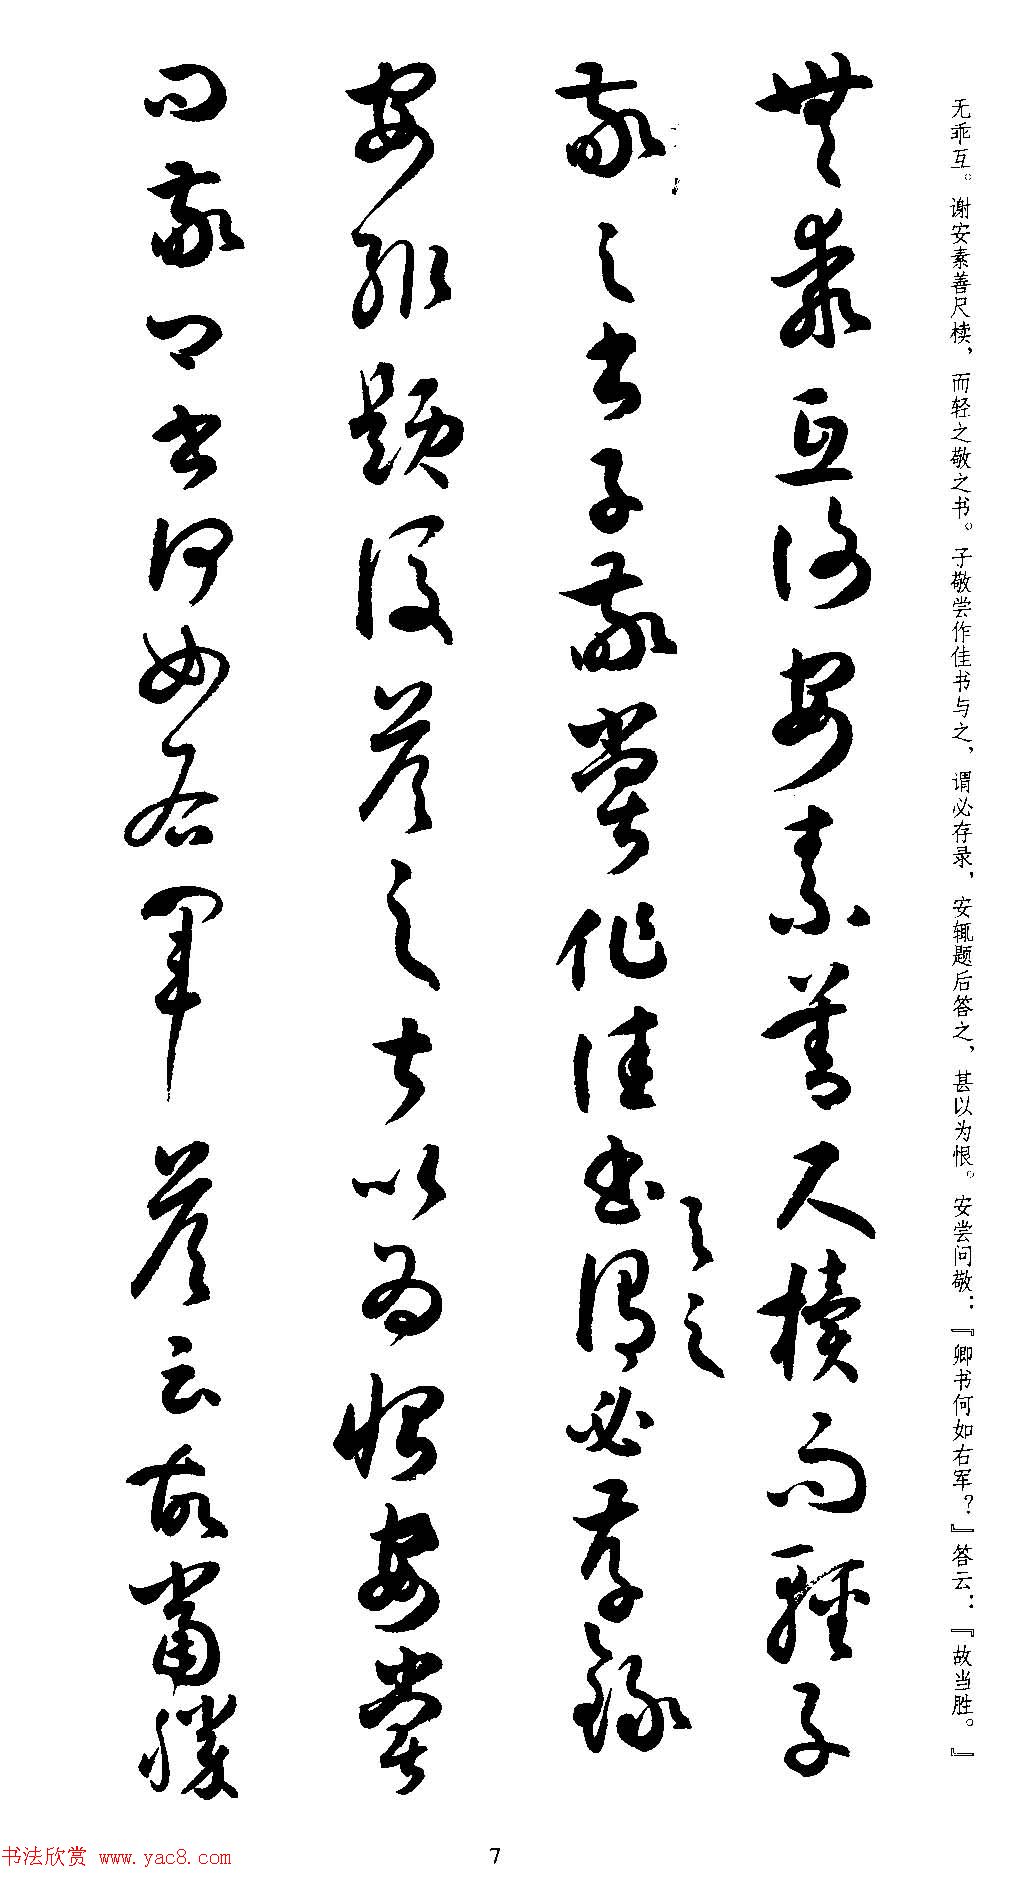 无乖互。谢安素善尺椟，而轻之敬之书。子敬尝作佳书与之，谓必存录，安辄题后答之，甚以为恨。安尝问敬：『卿书何如右军？』答云：『故当胜。』
無乖互謝安素善尺櫝而輕子
敬之書子敬嘗作佳書與之謂必存錄
安輒題後答之甚以為恨安嘗
問敬卿書何如右軍答云故當勝
书法欣赏 www.yac8.com
7